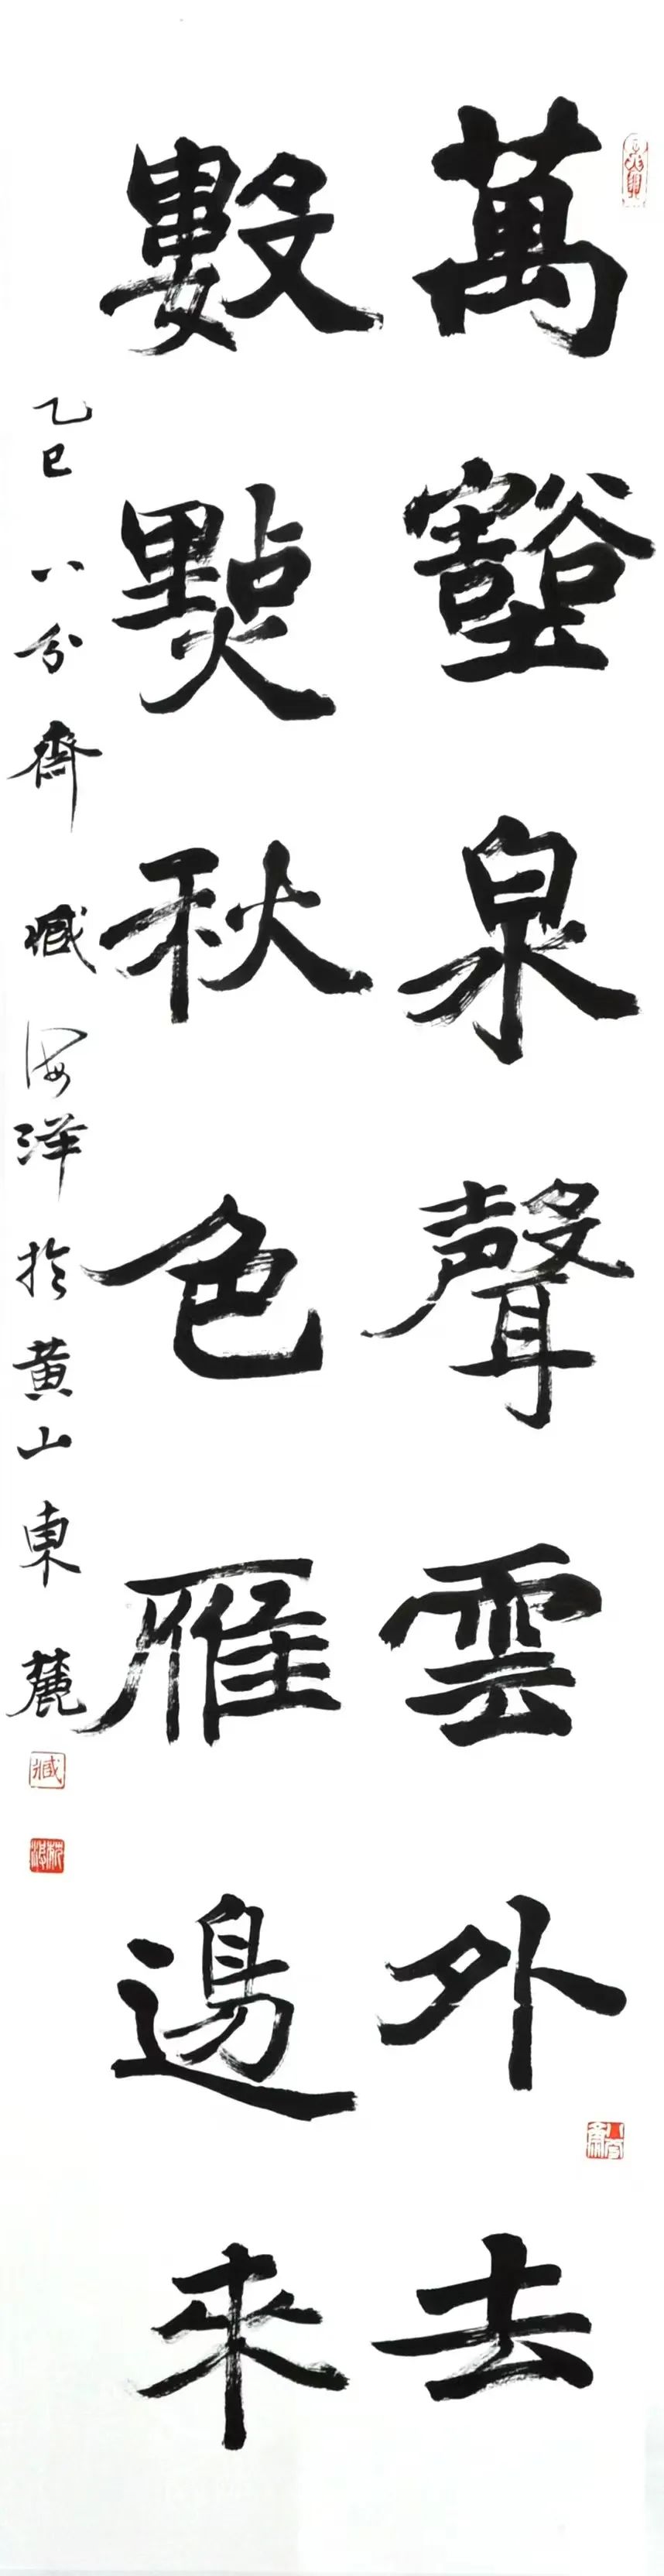 萬壑泉聲雲外去
數點秋色雁邊來
乙巳 八分齋 臧海洋於黄山東麓
臧